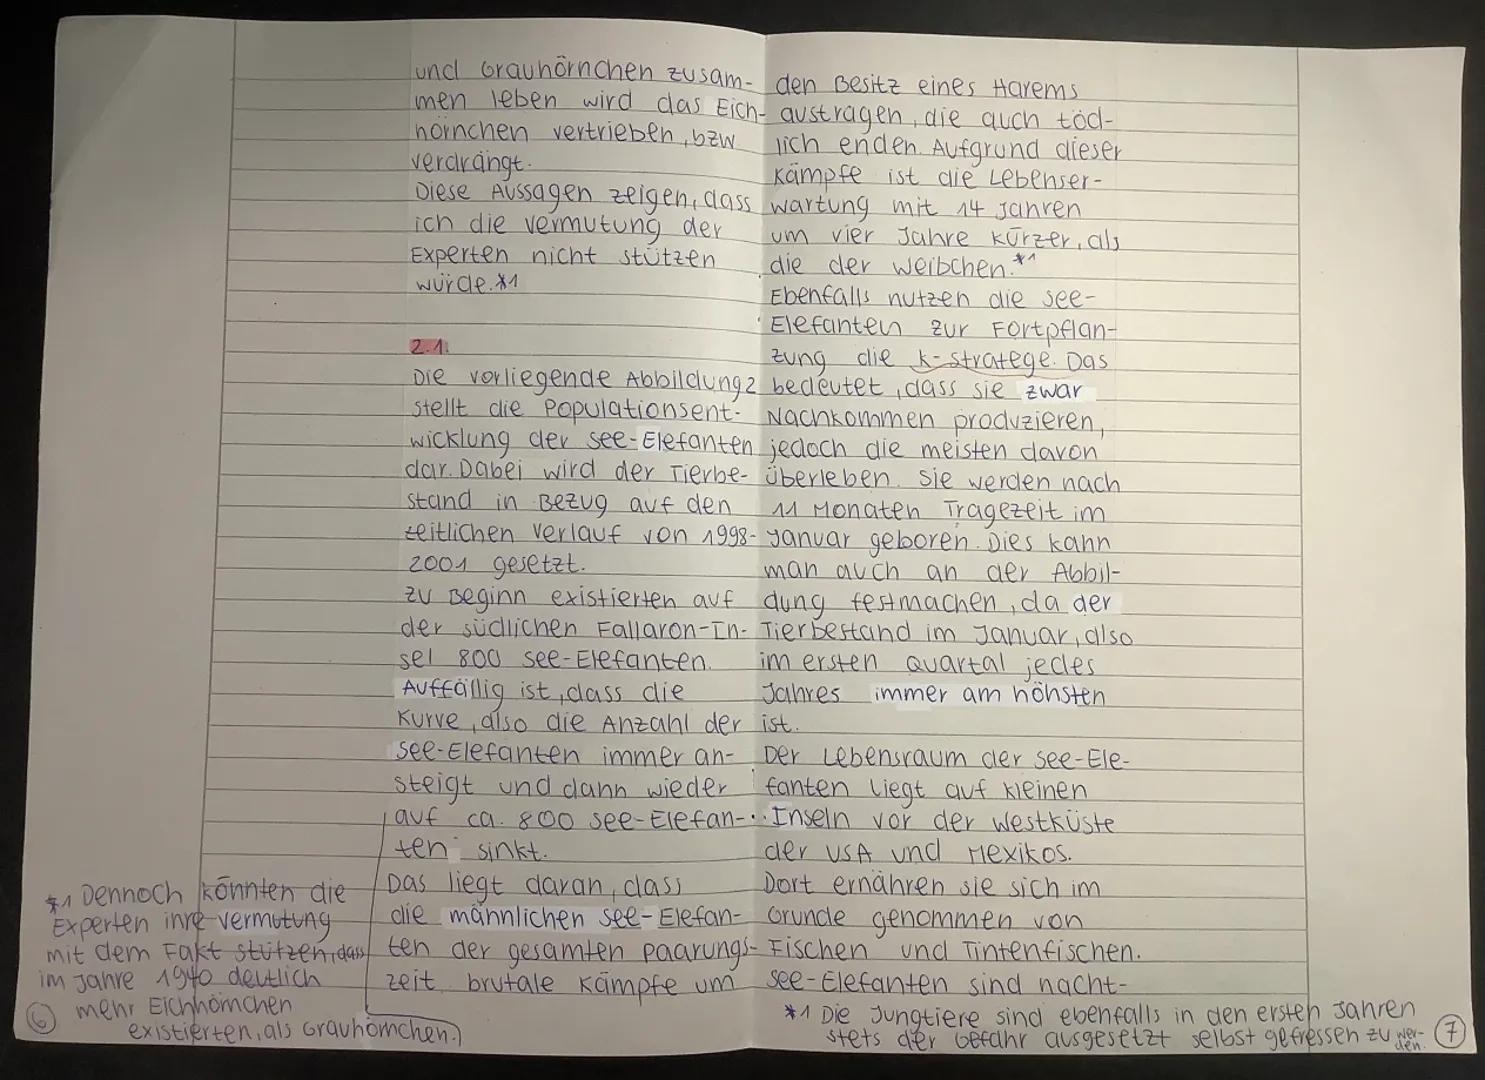 und Grauhörnchen zusam-
men leben wird das Eich-
hörnchen vertrieben, bzw
verdrängt.
Diese Aussagen zeigen, dass
ich die Vermutung der
Experten nicht stützen
würde.*1
2.1.
Die vorliegende Abbildung 2
stellt die Populationsent-
wicklung der See-Elefanten
dar. Dabei wird der Tierbe-
stand in Bezug auf den
zeitlichen Verlauf von 1998-
2001 gesetzt.
Zu Beginn existierten auf
der südlichen Fallaron-In-
sel 800 See-Elefanten.
Auffällig ist, dass die
Kurve, also die Anzahl der
See-Elefanten immer an-
steigt und dann wieder
auf ca. 800 See-Elefan-
ten sinkt.
Das liegt daran, dass
die männlichen See-Elefan-
ten der gesamten Paarungs-
zeit brutale Kämpfe um
*1 Dennoch könnten die
Experten ihre Vermutung
mit dem Fakt stützen, dass
im Jahre 1940 deutlich
mehr Eichhörnchen
existierten, als Grauhörnchen.
6
den Besitz eines Harems
austragen, die auch töd-
lich enden. Aufgrund dieser
Kämpfe ist die Lebenser-
wartung mit 14 Jahren
um vier Jahre kürzer, als
die der Weibchen.*1
Ebenfalls nutzen die See-
Elefanten zur Fortpflan-
zung die K-Stratege. Das
bedeutet, dass sie zwar
Nachkommen produzieren,
jedoch die meisten davon
überleben. Sie werden nach
11 Monaten Tragezeit im
Januar geboren. Dies kann
man auch an der Abbil-
dung festmachen, da der
Tierbestand im Januar, also
im ersten Quartal jedes
Jahres immer am höhsten
ist.
Der Lebensraum der See-Ele-
fanten liegt auf kleinen
Inseln vor der Westküste
der USA und Mexikos.
Dort ernähren sie sich im
Grunde genommen von
Fischen und Tintenfischen.
See-Elefanten sind nacht-
*1 Die Jungtiere sind ebenfalls in den ersten Jahren
stets der Gefahr ausgesetzt selbst gefressen zu wer-
den.
7